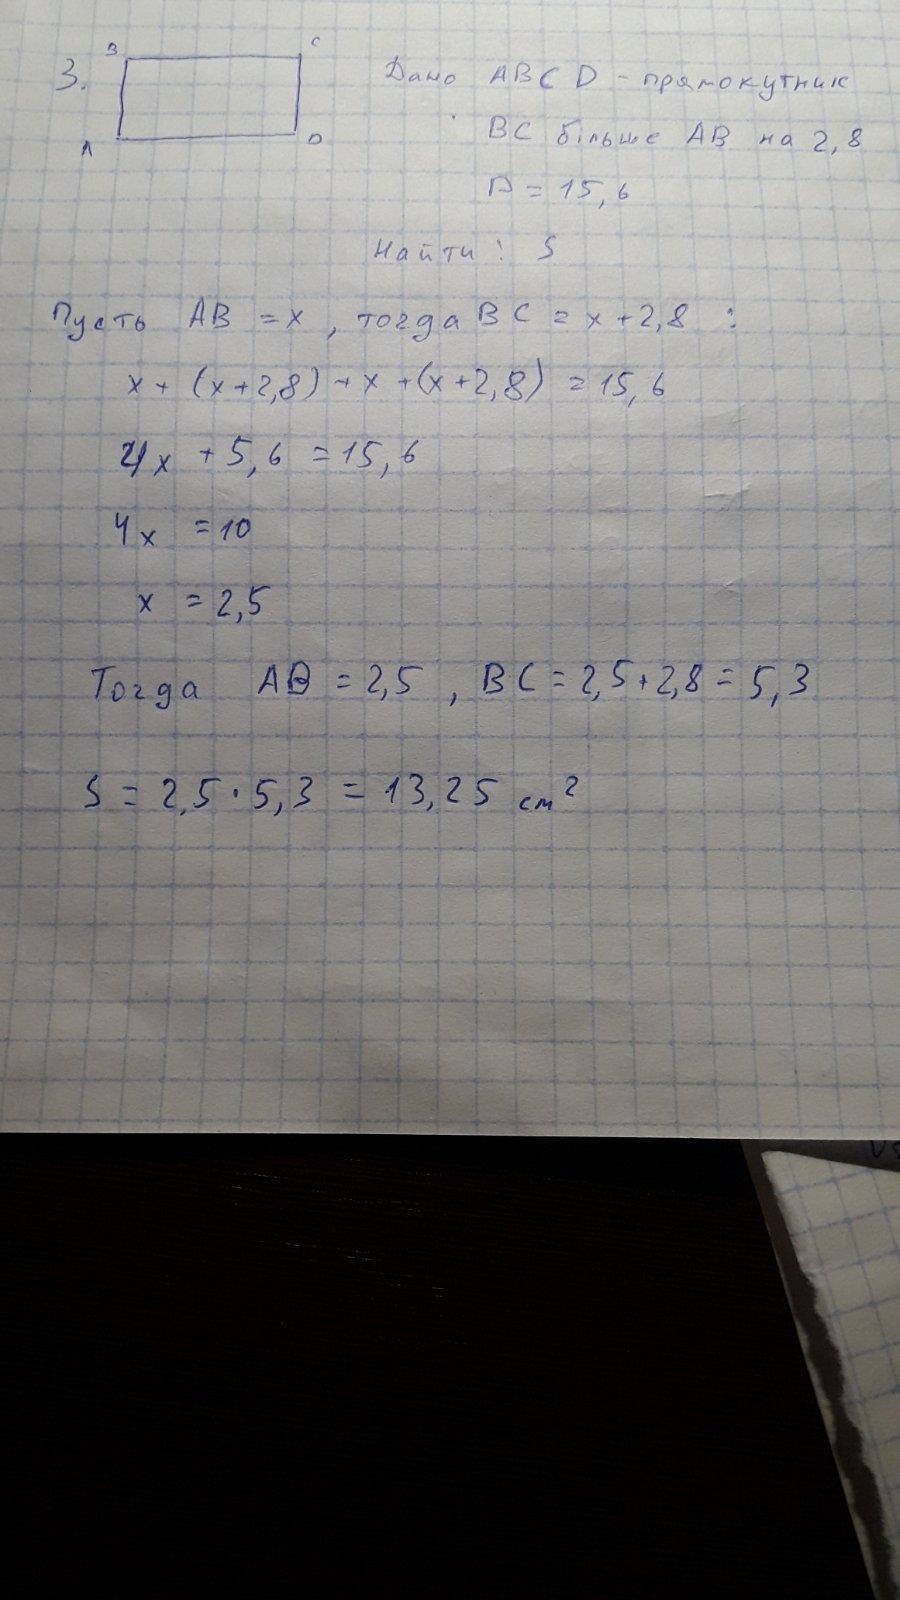 3.
B C
A D
Дано ABCD - прямокутник
BC більше AB на 2,8
P = 15,6
Найти : S
Пусть AB = x , тогда BC = x + 2,8 :
x + (x + 2,8) + x + (x + 2,8) = 15,6
4x + 5,6 = 15,6
4x = 10
x = 2,5
Тогда AB = 2,5 , BC = 2,5 + 2,8 = 5,3
S = 2,5 · 5,3 = 13,25 см²